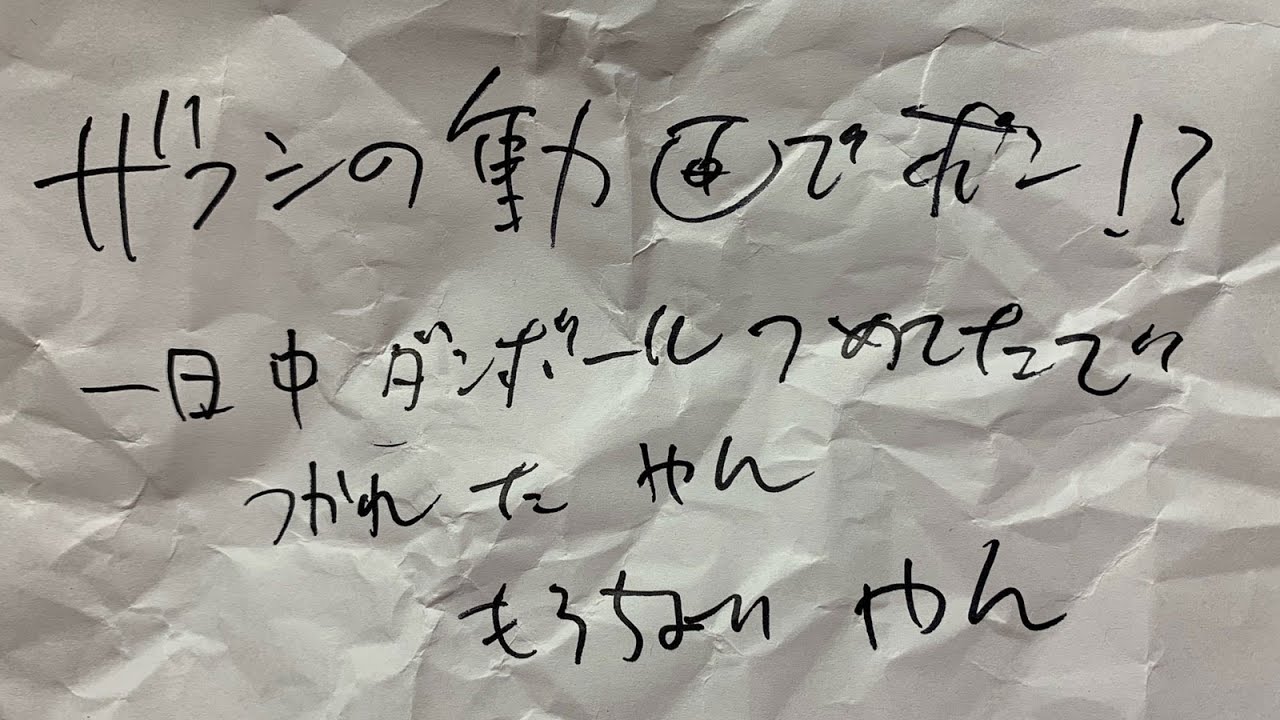 ザブシの動画でポン!?
一日中ダンボールつめてたでッ
つかれた やん
もうちょい やん